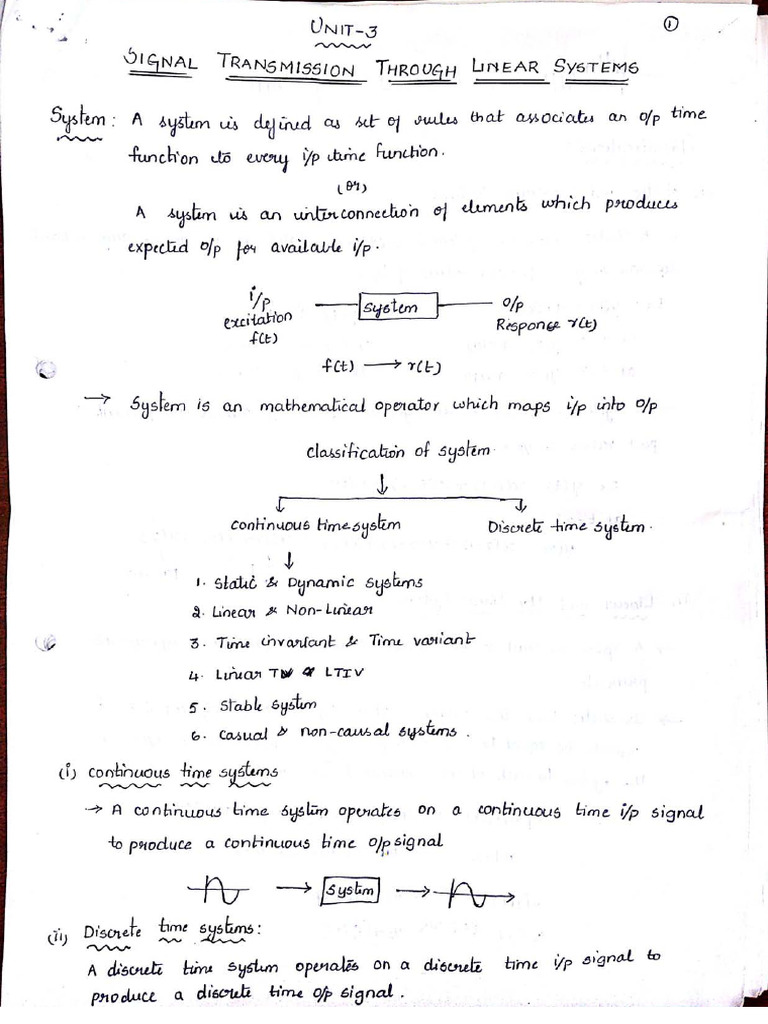 UNIT-3
1
SIGNAL TRANSMISSION THROUGH LINEAR SYSTEMS
System: A system is defined as set of rules that associates an o/p time
function to every i/p time function.
(or)
A system is an interconnection of elements which produces
expected o/p for available i/p.
i/p
excitation
f(t)
System
o/p
Response r(t)
f(t) → r(t)
→ System is an mathematical operator which maps i/p into o/p
classification of system.
↓
continuous time system Discrete time system.
↓
1. Static & Dynamic systems
2. Linear & Non-Linear
3. Time invariant & Time variant
4. Linear TV & LTIV
5. Stable system
6. Casual & non-causal systems.
(i) continuous time systems
→ A continuous time system operates on a continuous time i/p signal
to produce a continuous time o/p signal
→ System →
(ii) Discrete time systems:
A discrete time system operates on a discrete time i/p signal to
produce a discrete time o/p signal.